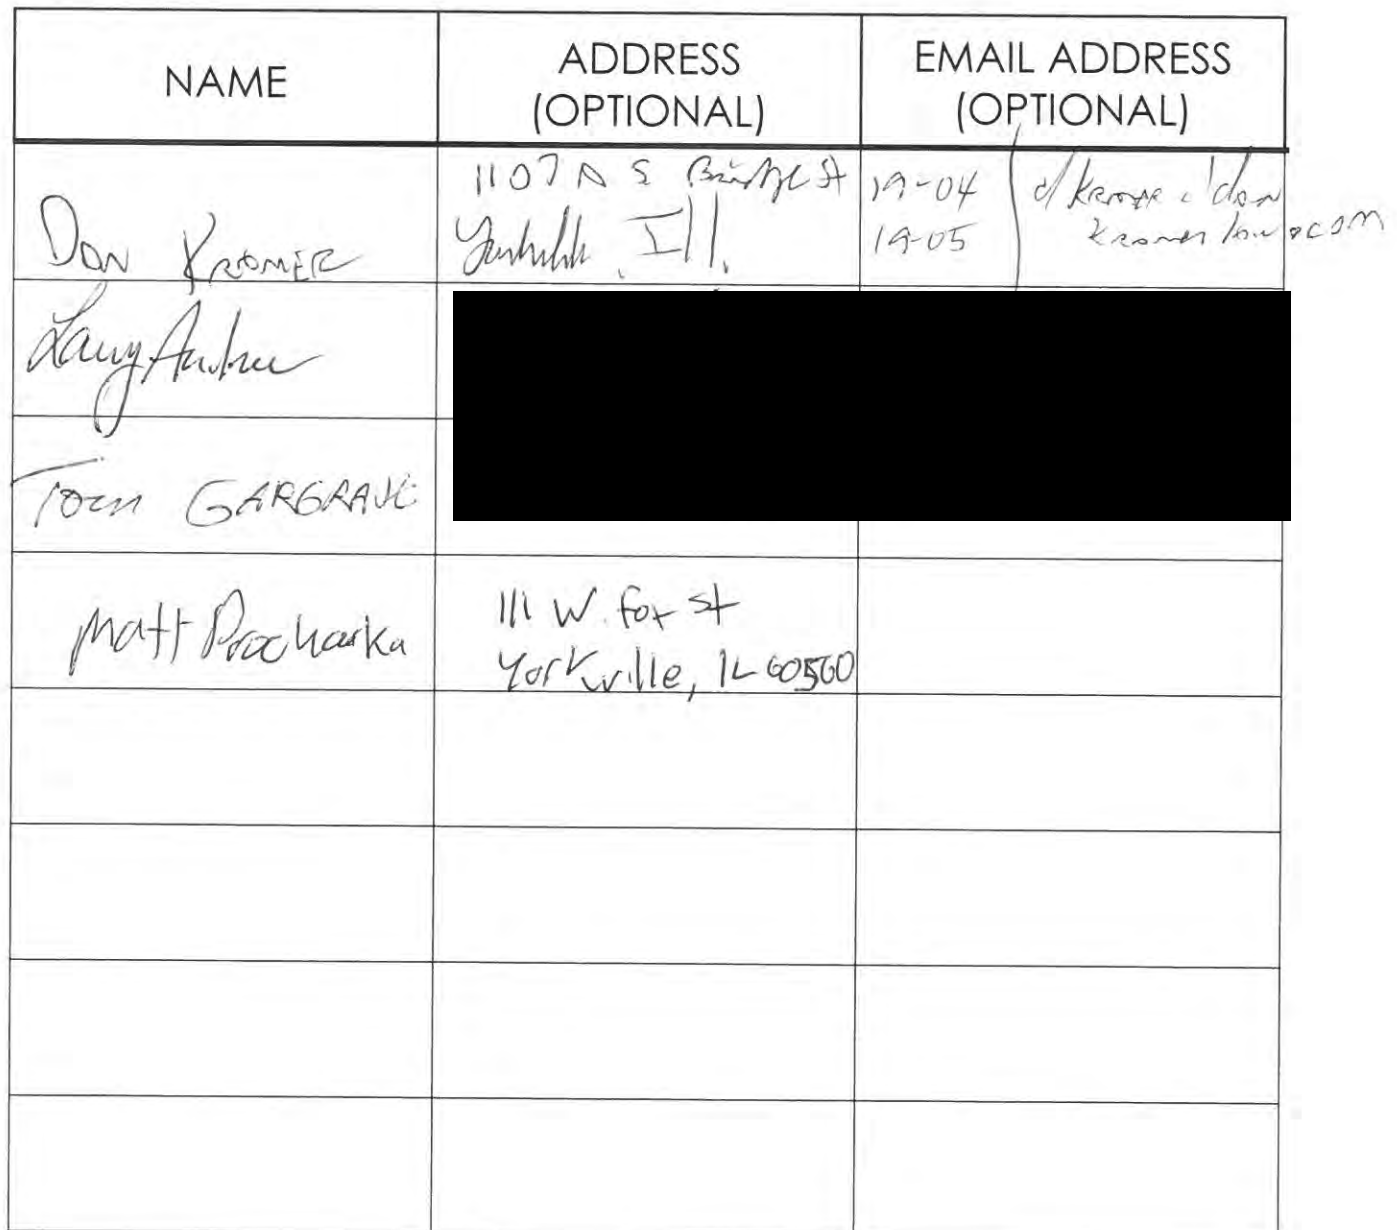 NAME
ADDRESS
(OPTIONAL)
EMAIL ADDRESS
(OPTIONAL)
Dan Kramer
1107 A S Bridge St
Yorkville, Ill.
19-04
19-05
dkramer @ dan
kramer law.com
Larry
Tom GARGRAVE
Matt Prochaska
111 W. Fox St
Yorkville, IL 60560